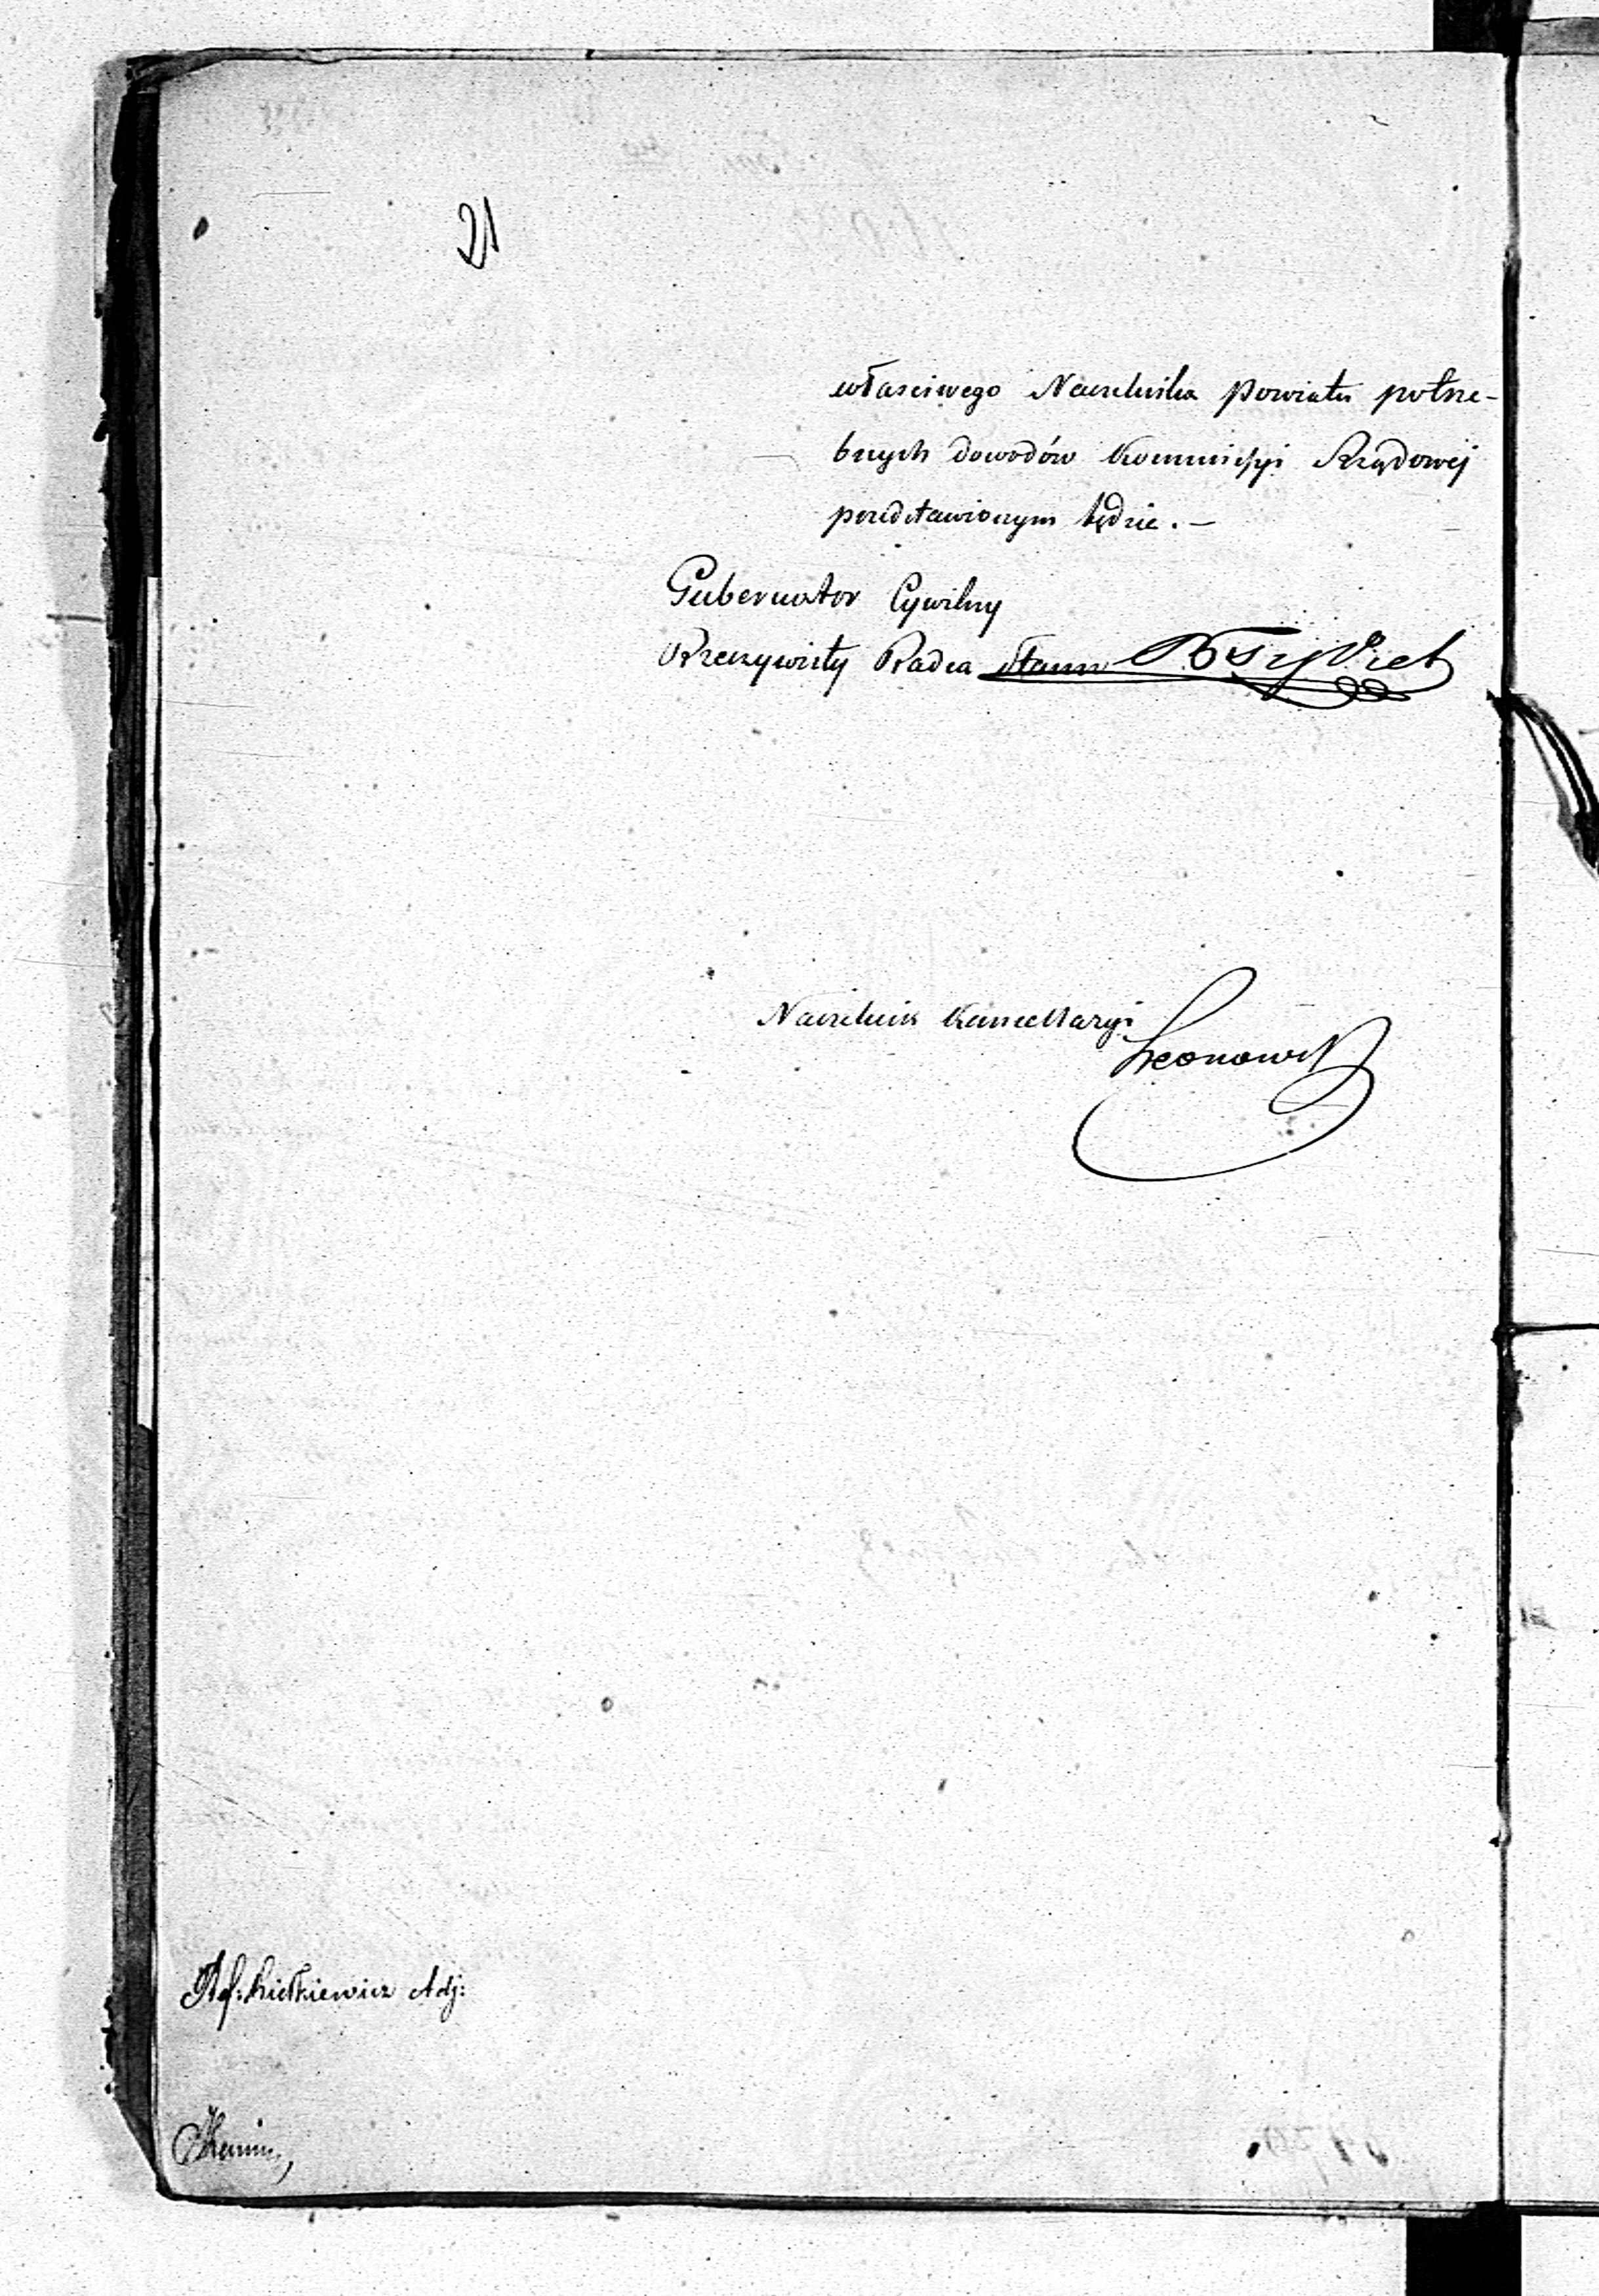 21
właściwego Naczelnika Powiatu potrze-
bnych dowodów Kommissyi Rządowej
przedstawionym będzie. —
Gubernator Cywilny
Rzeczywisty Radca Stanu
Naczelnik Kancellaryi
Adj: